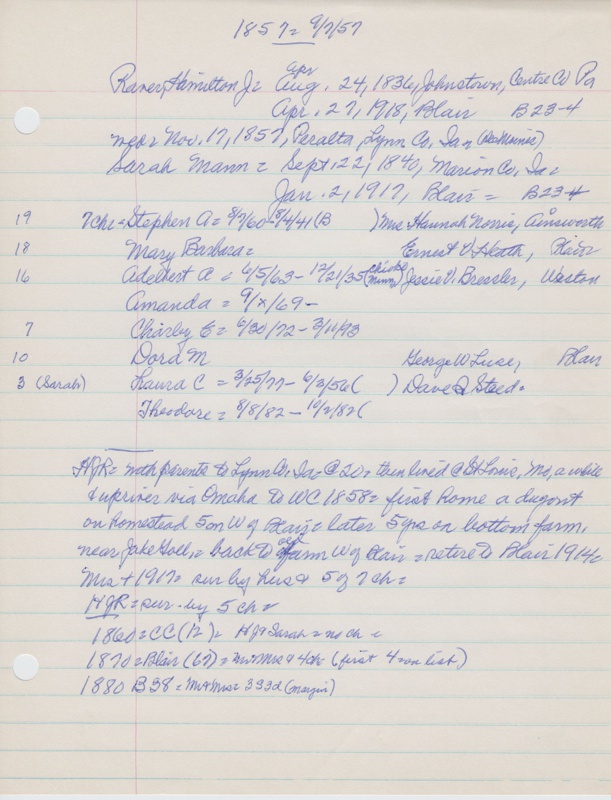 1857 = 9/7/57
Raver, Hamilton Jr = Apr Aug. 24, 1836, Johnstown, Centre Co Pa
Apr. 27, 1918, Blair B23-4
mar Nov. 17, 1857, Peralta, Lynn Co, Ia = (Des Moines)
Sarah Mann = Sept. 22, 1840, Marion Co, Ia =
Jan. 2, 1917, Blair = B23-4
19 7 ch = Stephen A = 8/7/60 - 8/4/41 (B ) Mrs Hannah Norris, Ainsworth
18 Mary Barbara = Ernest V Heath, Blair
16 Adelbert A = 6/5/63 - 12/21/35 ( Minn) Jessie V. Bressler, Weston
Amanda = 9/x/69 -
7 Charley E = 6/30/72 - 3/11/93
10 Dora M George W Luse, Blair
3 (Sarah) Laura C = 3/25/77 - 6/3/56 ( ) Dave Steed =
Theodore = 8/8/82 - 10/2/82 (
HJR = with parents to Lynn Co, Ia = @ 20 = then lived @ St Louis, Mo, a while
& upriver via Omaha to WC 1858 = first home a dugout
on homestead 5 m W of Blair = later 5 yrs on bottom farm,
near Jake Goll, = back to old farm W of Blair = retire to Blair 1914
Mrs + 1917 = sur by hus & 5 of 7 ch =
HJR = sur. by 5 ch =
1860 = CC (12) = HJ & Sarah = no ch =
1870 = Blair (67) = Mr & Mrs & 4 ch (first 4 on list)
1880 B38 = Mr & Mrs = 3 3 3d (margin)